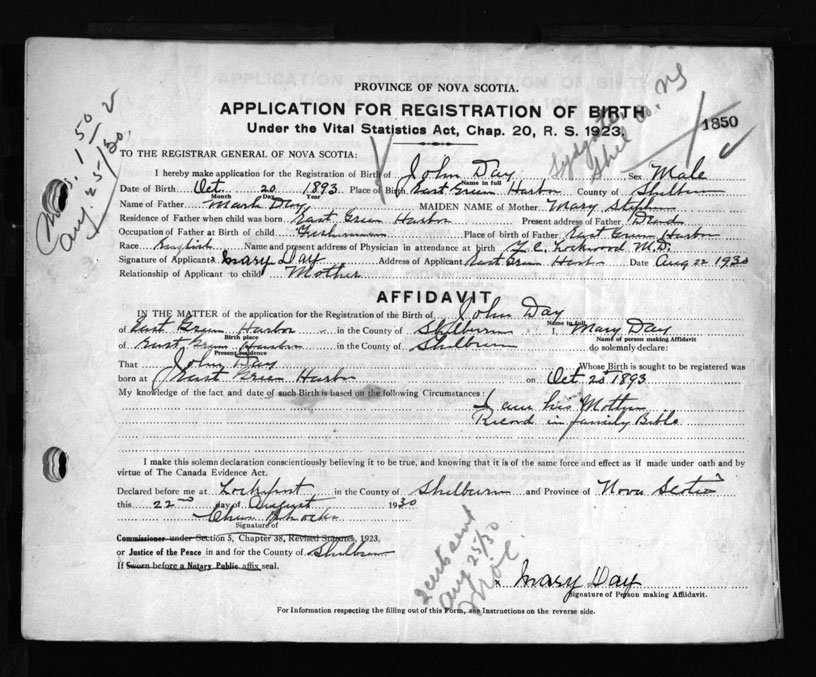 PROVINCE OF NOVA SCOTIA.
APPLICATION FOR REGISTRATION OF BIRTH
Under the Vital Statistics Act, Chap. 20, R. S. 1923.
1850
1.50
Aug. 25/30
TO THE REGISTRAR GENERAL OF NOVA SCOTIA:
I hereby make application for the Registration of Birth of John Day Sex Male
Name in full
Date of Birth Oct. 20 1893 Place of Birth East Green Harbor County of Shelburn
Month Day Year
Name of Father Mark Day MAIDEN NAME of Mother Mary
Residence of Father when child was born East Green Harbor Present address of Father Dead
Occupation of Father at Birth of child Fisherman Place of birth of Father East Green Harbor
Race English Name and present address of Physician in attendance at birth Lockwood M.D.
Signature of Applicant Mary Day Address of Applicant East Green Harbor Date Aug 22 1930
Relationship of Applicant to child Mother
AFFIDAVIT
IN THE MATTER of the application for the Registration of the Birth of John Day
Name in full
of East Green Harbor in the County of Shelburn I, Mary Day
Birth place Name of person making Affidavit
of East Green Harbor in the County of Shelburn do solemnly declare:
Present residence
That John Day Whose Birth is sought to be registered was
born at East Green Harbor on Oct 20 1893
My knowledge of the fact and date of such Birth is based on the following Circumstances:
I am his Mother
Record in family Bible
I make this solemn declaration conscientiously believing it to be true, and knowing that it is of the same force and effect as if made under oath and by
virtue of The Canada Evidence Act.
Declared before me at Lockeport in the County of Shelburn and Province of Nova Scotia
this 22nd day of August 1930
Signature of
Commissioner under Section 5, Chapter 38, Revised Statutes, 1923,
or Justice of the Peace in and for the County of Shelburn
If Sworn before a Notary Public affix seal.
sent
Aug 25/30
x Mary Day
Signature of Person making Affidavit.
For Information respecting the filling out of this Form, see Instructions on the reverse side.